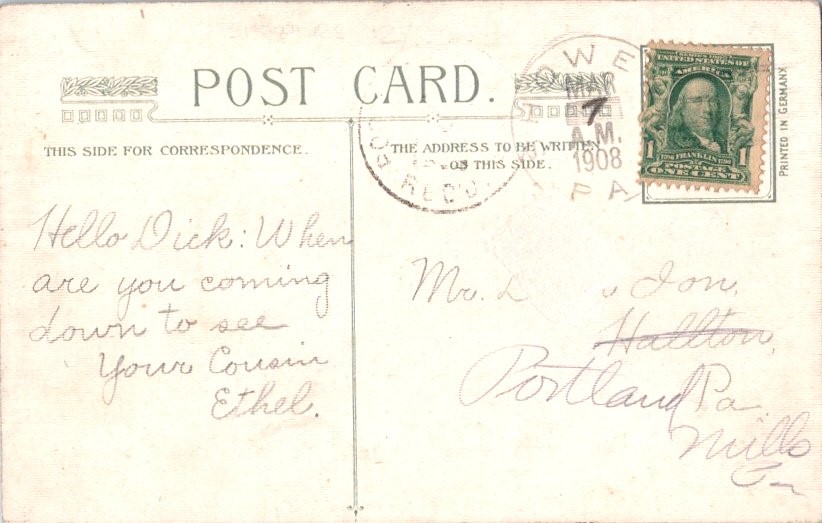 POST CARD.
THIS SIDE FOR CORRESPONDENCE.
THE ADDRESS TO BE WRITTEN
ON THIS SIDE.
REC'D.
MAR
7
A.M.
1908
PA
UNITED STATES OF
AMERICA
FRANKLIN
1 POSTAGE 1
ONE CENT
PRINTED IN GERMANY
Hello Dick: When
are you coming
down to see
Your Cousin
Ethel.
Mr.
Hallton,
Portland Pa.
Mills